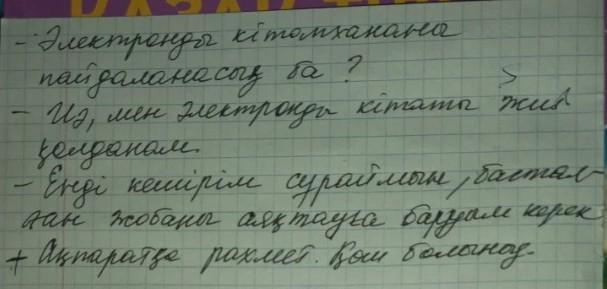 - Электронды кітапхананы
пайдаланасың ба?
- Иә, мен электронды кітапты жиі
қолданам.
- Енді кешірім сұраймын, бастал-
ған жобаны аяқтауға баруым керек
+ Ақпаратқа рахмет. Қош болыңыз.